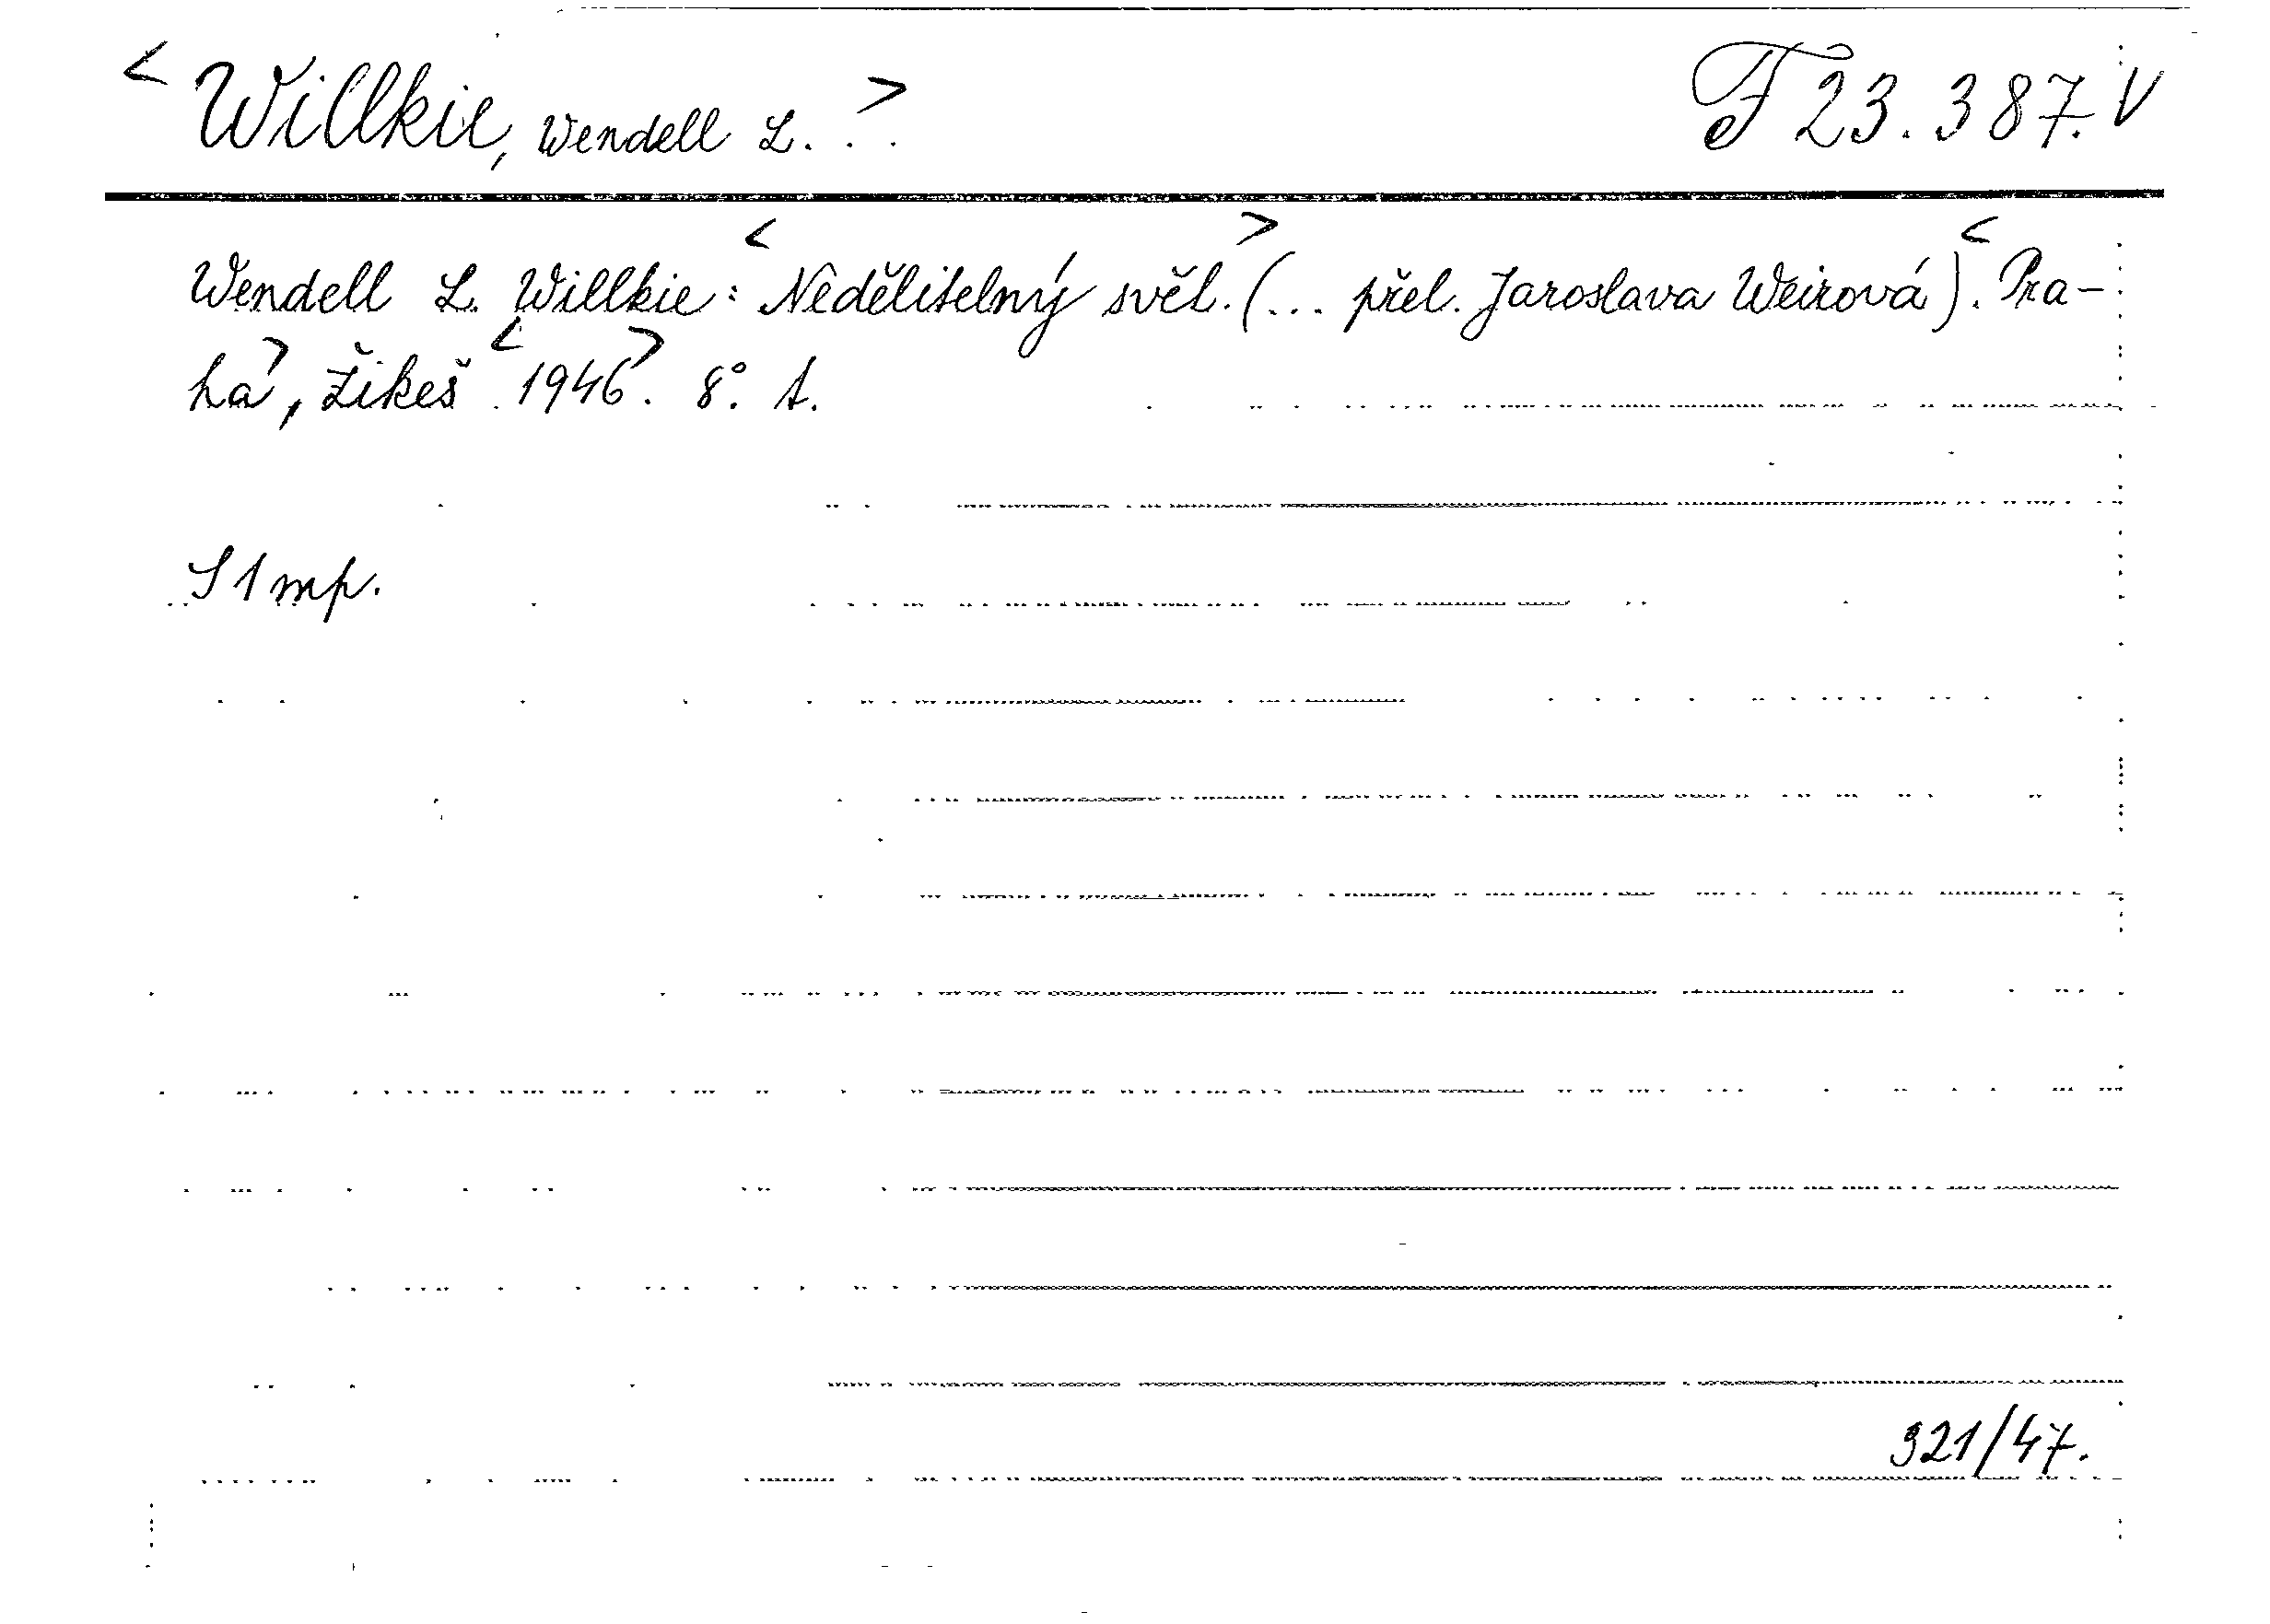 < Willkie, Wendell L. . . >
F 23.387. V
Wendell L. Willkie: < Nedělitelný svět. > (... přel. Jaroslava Weirová). < Pra-
ha >, Žikeš < 1946 >. 8°. A.
S 1 mp.
321/47.